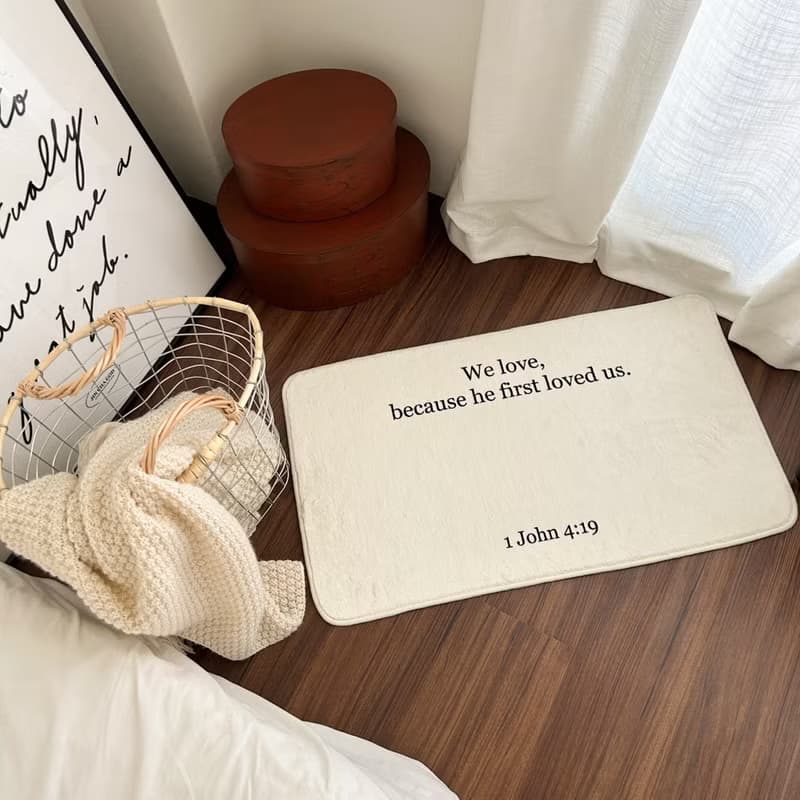 to
tually,
ave done a
at job.
We love,
because he first loved us.
1 John 4:19